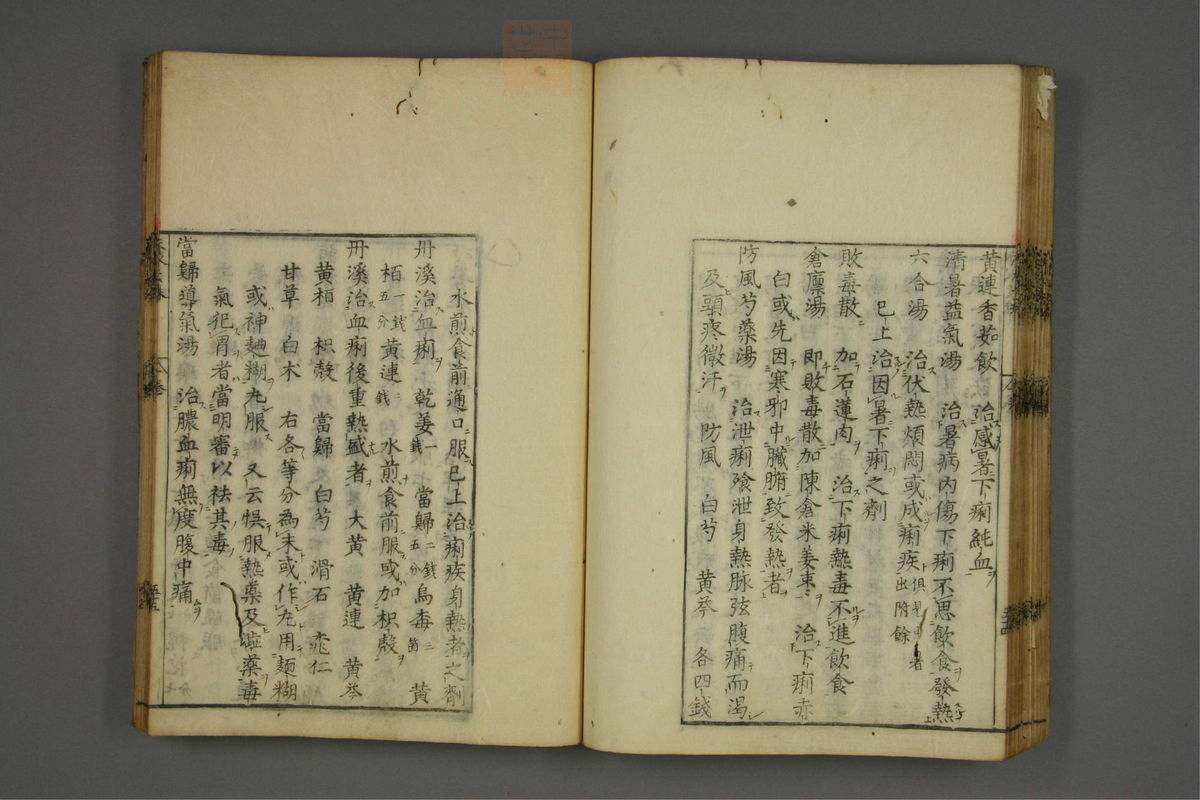 黄連香茹飲　治感暑下痢純血
清暑益氣湯　治暑病内傷下痢不思飲食發熱
六合湯　治伏熱煩悶或成痢疾俱見中暑出附餘
已上治因暑下痢之劑
敗毒散　加石蓮肉　治下痢熱毒不進飲食
倉廩湯　即敗毒散加陳倉米姜棗　治下痢赤
白或先因寒邪中臓腑致發熱者
防風芍藥湯　治泄痢飱泄身熱脉弦腹痛而渴
及頭疼微汗　防風　白芍　黄芩各四錢
水煎食前通口服已上治痢疾身熱者之劑
丹溪治血痢　乾姜一錢　當歸二錢五分　烏毒三箇　黄
栢一錢五分　黄連二錢　水煎食前服或加枳殻
丹溪治血痢後重熱盛者　大黄　黄連　黄芩
黄栢　枳殻　當歸　白芍　滑石　桃仁
甘草　白术　右各等分為末或作丸用麺糊
或神麯糊丸服　又云悞服熱藥及澁藥毒
氣犯胃者當明審以袪其毒
當歸導氣湯　治膿血痢無度腹中痛